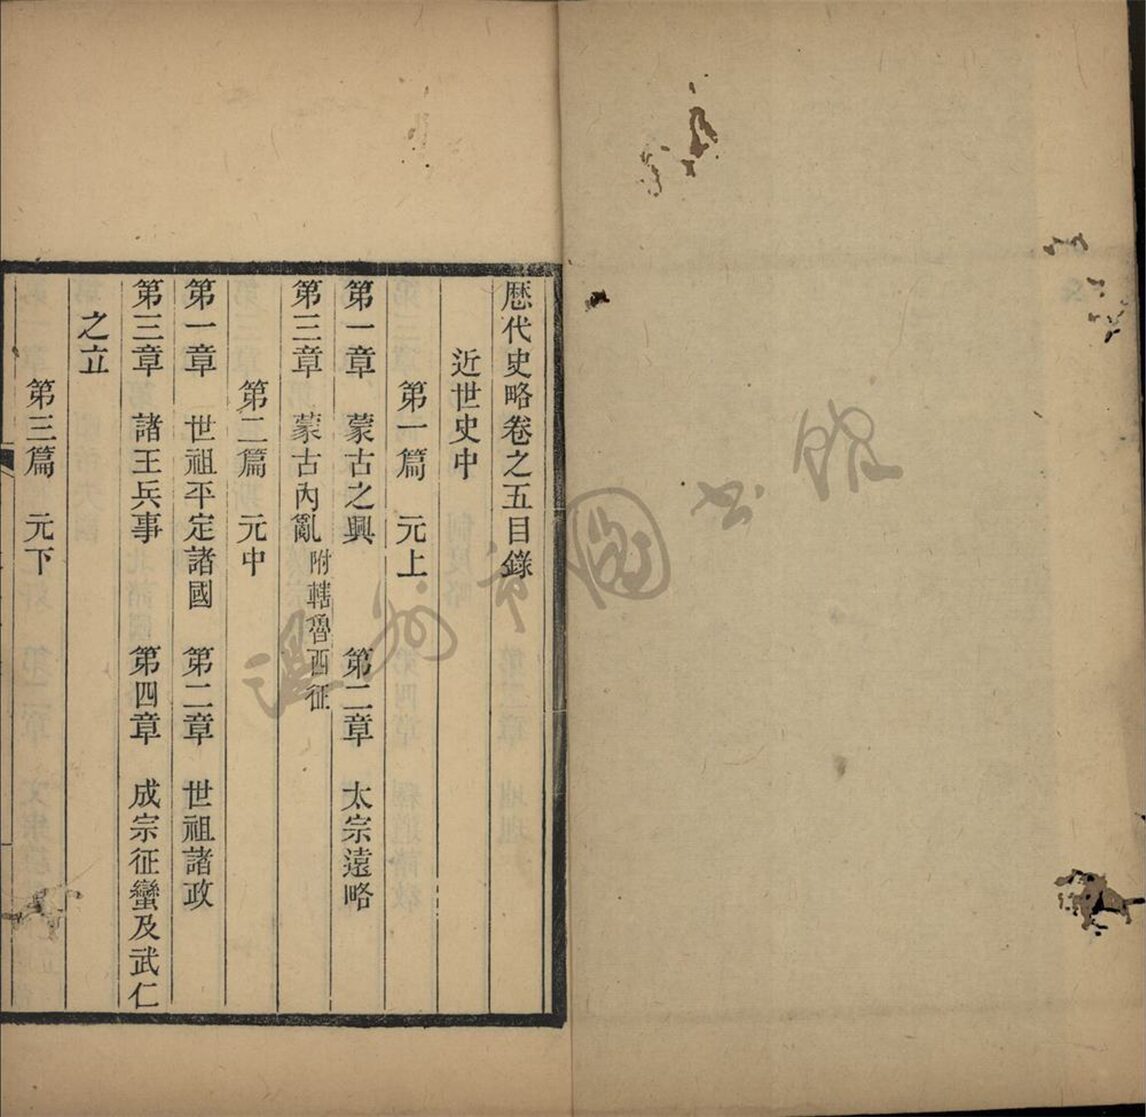 歷代史略卷之五目錄
近世史中
第一篇　元上
第一章　蒙古之興　第二章　太宗遠略
第三章　蒙古內亂　附轄魯西征
第二篇　元中
第一章　世祖平定諸國　第二章　世祖諸政
第三章　諸王兵事　第四章　成宗征蠻及武仁
之立
第三篇　元下
溫州市圖書館